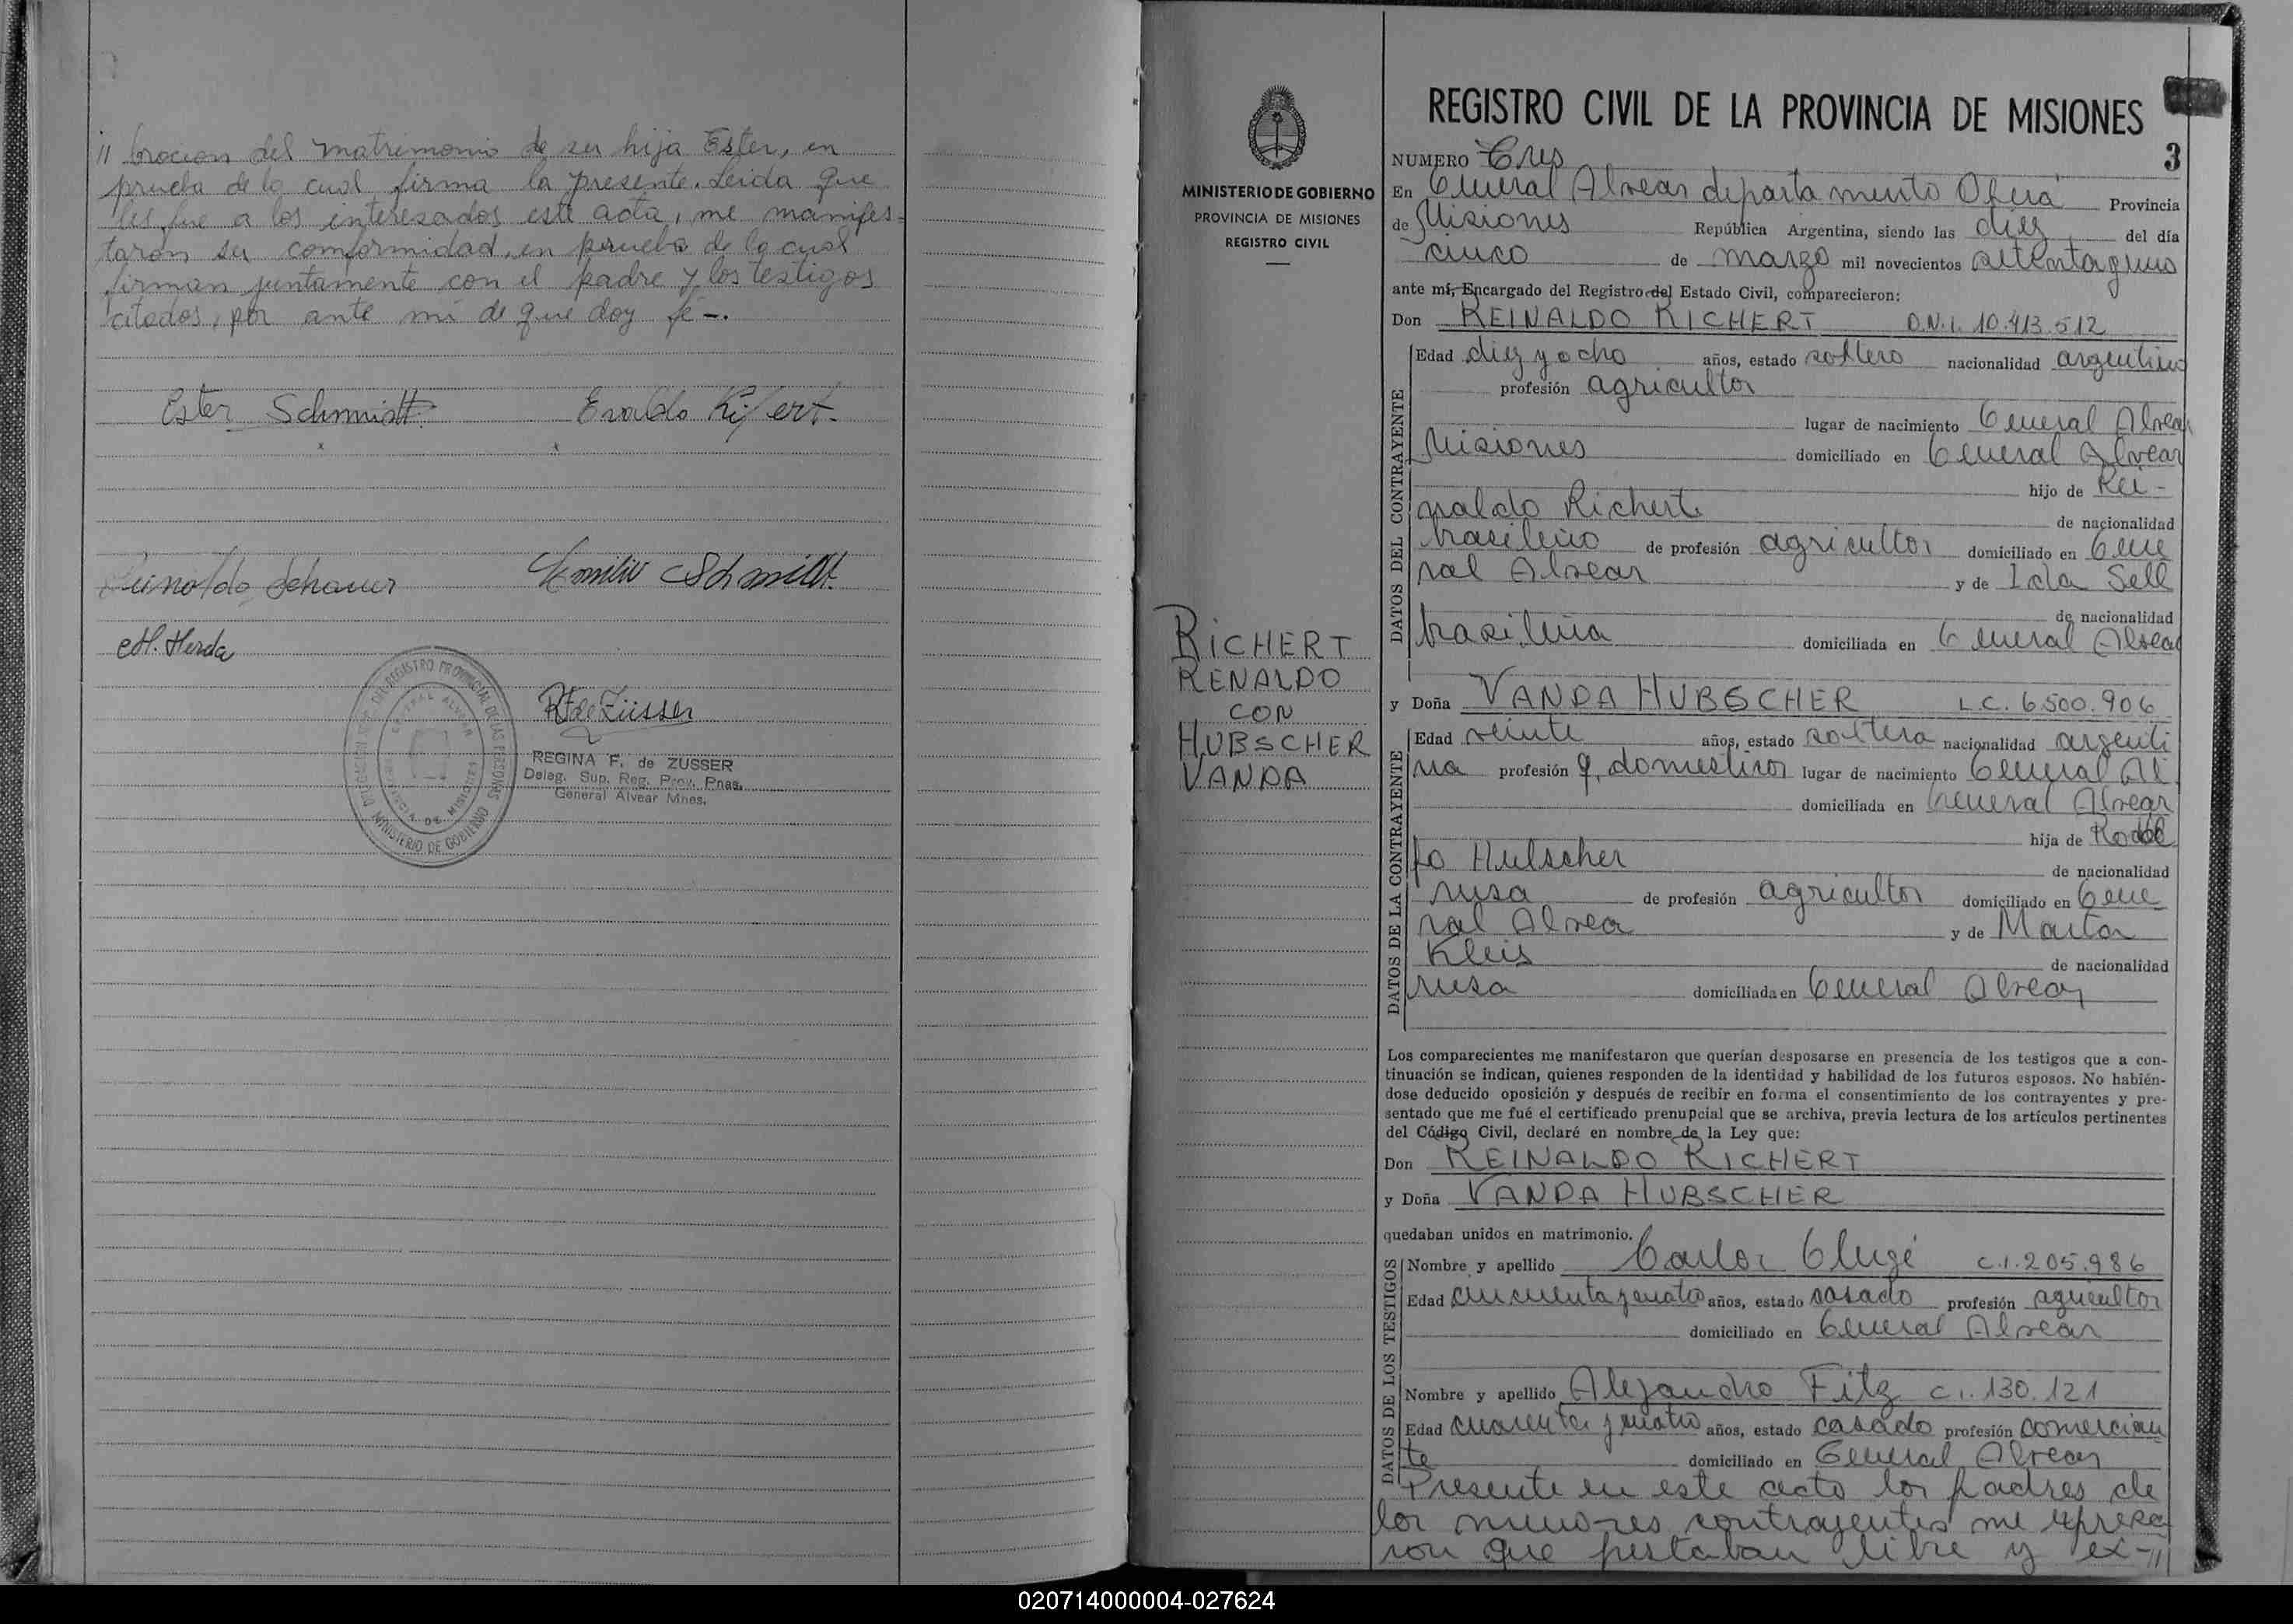 // bracion del matrimonio de su hija Ester, en
prueba de lo cual firma la presente. Leida que
les fue a los interesados este acta, me manifes-
taron su conformidad, en prueba de lo cual
firman juntamente con el padre y los testigos
citados, por ante mi de que doy fe-.
Ester Schmidt Evaldo Kifert
x x
Reinoldo Schauer Emilio Schmidt.
H. Herda
REGINA F. de ZUSSER
Deleg. Sup. Reg. Prov. Pnas.
General Alvear Mnes.
REGISTRO PROVINCIAL DE LAS PERSONAS
MINISTERIO DE GOBIERNO
GENERAL ALVEAR
MINISTERIO DE GOBIERNO
PROVINCIA DE MISIONES
REGISTRO CIVIL
RICHERT
RENALDO
CON
HUBSCHER
VANDA
REGISTRO CIVIL DE LA PROVINCIA DE MISIONES
NUMERO Tres 3
En General Alvear departamento Oberá Provincia
de Misiones República Argentina, siendo las diez del día
cinco de marzo mil novecientos setentayuno
ante mí, Encargado del Registro del Estado Civil, comparecieron:
Don REINALDO RICHERT D.N.I. 10.413.512
DATOS DEL CONTRAYENTE
Edad diez y ocho años, estado soltero nacionalidad argentino
profesión agricultor
lugar de nacimiento General Alvear
Misiones domiciliado en General Alvear
hijo de Rei-
naldo Richert de nacionalidad
brasileño de profesión agricultor domiciliado en Gene
ral Alvear y de Ida Sell
de nacionalidad
brasileña domiciliada en General Alvear
y Doña VANDA HUBSCHER L.C. 6.500.906
DATOS DE LA CONTRAYENTE
Edad veinte años, estado soltera nacionalidad argenti
na profesión q. domesticos lugar de nacimiento General Al.
domiciliada en General Alvear
hija de Rodol
fo Hulscher de nacionalidad
rusa de profesión agricultor domiciliado en Gene
ral Alvear y de Marta
Kleis de nacionalidad
rusa domiciliada en General Alvear
Los comparecientes me manifestaron que querían desposarse en presencia de los testigos que a con-
tinuación se indican, quienes responden de la identidad y habilidad de los futuros esposos. No habién-
dose deducido oposición y después de recibir en forma el consentimiento de los contrayentes y pre-
sentado que me fué el certificado prenupcial que se archiva, previa lectura de los artículos pertinentes
del Código Civil, declaré en nombre de la Ley que:
Don REINALDO RICHERT
y Doña VANDA HUBSCHER
quedaban unidos en matrimonio.
DATOS DE LOS TESTIGOS
Nombre y apellido Carlos Clugé C.I. 205.986
Edad cincuentaycuatro años, estado casado profesión agricultor
domiciliado en General Alvear
Nombre y apellido Alejandro Fitz C.I. 130.121
Edad cuarenta y cuatro años, estado casado profesión comercian
te domiciliado en General Alvear
Presente en este acto los padres de
los menores contrayentes me expresa
ron que prestaban libre y ex-//
020714000004-027624